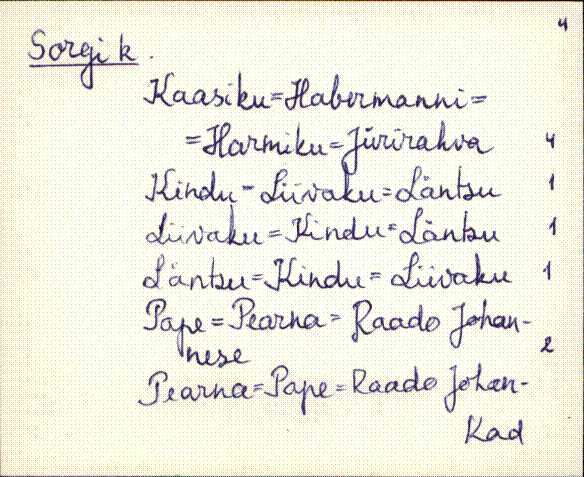 4
Sorgi k.
Kaasiku=Habermanni=
=Harmiku=Jürirahva 4
Kindu-Liivaku=Läntsu 1
Liivaku=Kindu=Läntsu 1
Läntsu=Kindu=Liivaku 1
Pape=Pearna=Raado Johan-
nese 2
Pearna=Pape=Raado Johan-
Kad